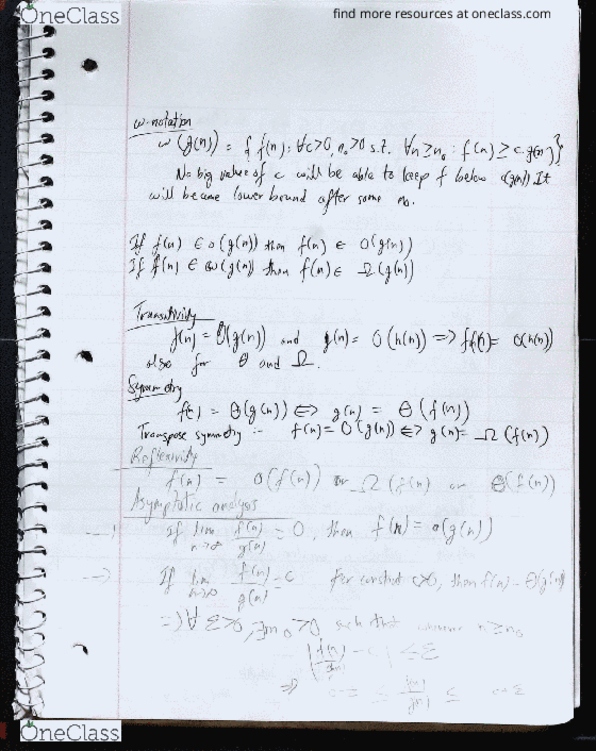 OneClass
find more resources at oneclass.com
ω-notation
ω(g(n)) = { f(n): ∀c>0, n₀>0 s.t. ∀n≥n₀ : f(n) ≥ c.g(n) }
No big value of c will be able to keep f below c(g(n)) It
will become lower bound after some n₀.
If f(n) ∈ o(g(n)) then f(n) ∈ O(g(n))
If f(n) ∈ ω(g(n)) then f(n) ∈ Ω(g(n))
Transitivity
f(n) = O(g(n)) and g(n) = O(h(n)) => f(n) = O(h(n))
also for θ and Ω.
Symmetry
f(n) = θ(g(n)) <=> g(n) = θ(f(n))
Transpose symmetry :- f(n) = O(g(n)) <=> g(n) = Ω(f(n))
Reflexivity
f(n) = O(f(n)) or Ω(f(n)) or θ(f(n))
Asymptotic analysis
If lim n→∞ f(n)/g(n) = 0, then f(n) = o(g(n))
If lim n→∞ f(n)/g(n) = c for constant c>0, then f(n) = θ(g(n))
∀ε>0, ∃ n₀>0 such that n≥n₀
OneClass